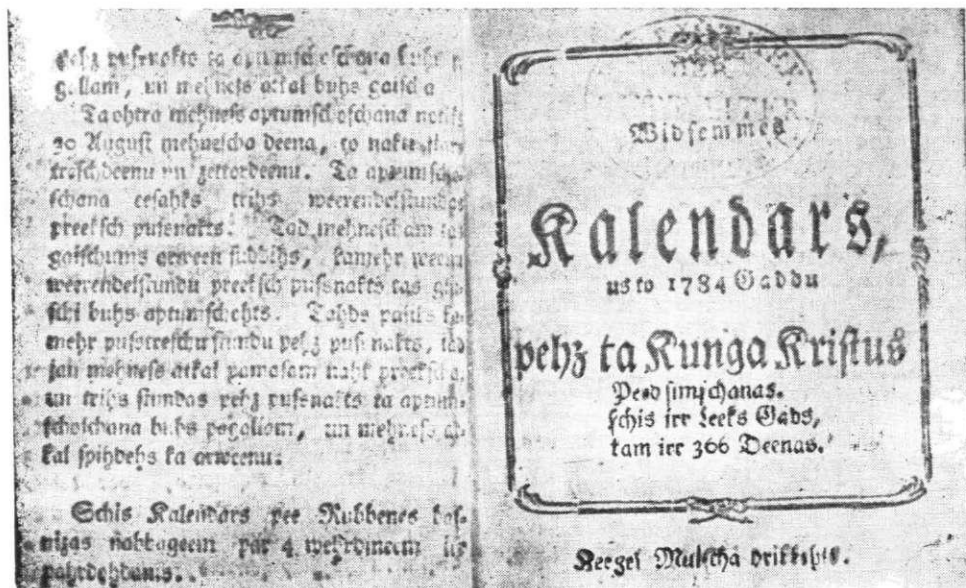 pehz pusnakts ta aptumschoschana buhs
gallam, un mehness atkal buhs gaisch
Ta ohtra mehness aptumschoschana notiks
30 August mehnescha deena, to nakti starp
treschdeenu un zettordeenu. Ta aptumscho-
schana eesahks trihs weerendelstundas
preeksch pusnakts. Tad mehnescham tas
gaischums arween suddihs, kamehr weenu
weerendelstundu preeksch pussnakts tas
buhs aptumschohts. Tahds paliks ka-
mehr pusotreschu stundu pehz pusnakts, tad
jau mehness atkal pamasam nahk preekscha,
un trihs stundas pehz pussnakts ta aptum-
schoschana buhs pagallam, un mehness at-
kal spihdehs ka arweenu.
Schis Kalendars pee Rubbenes bas-
nizas nabbageem par 4 wehrdineem
pahrdohdams.
Widsemmes
Kalendars,
us to 1784 Gaddu
pehz ta Kunga Kristus
Peedsimschanas.
schis irr Leels Gads,
kam irr 366 Deenas.
drikkehts.